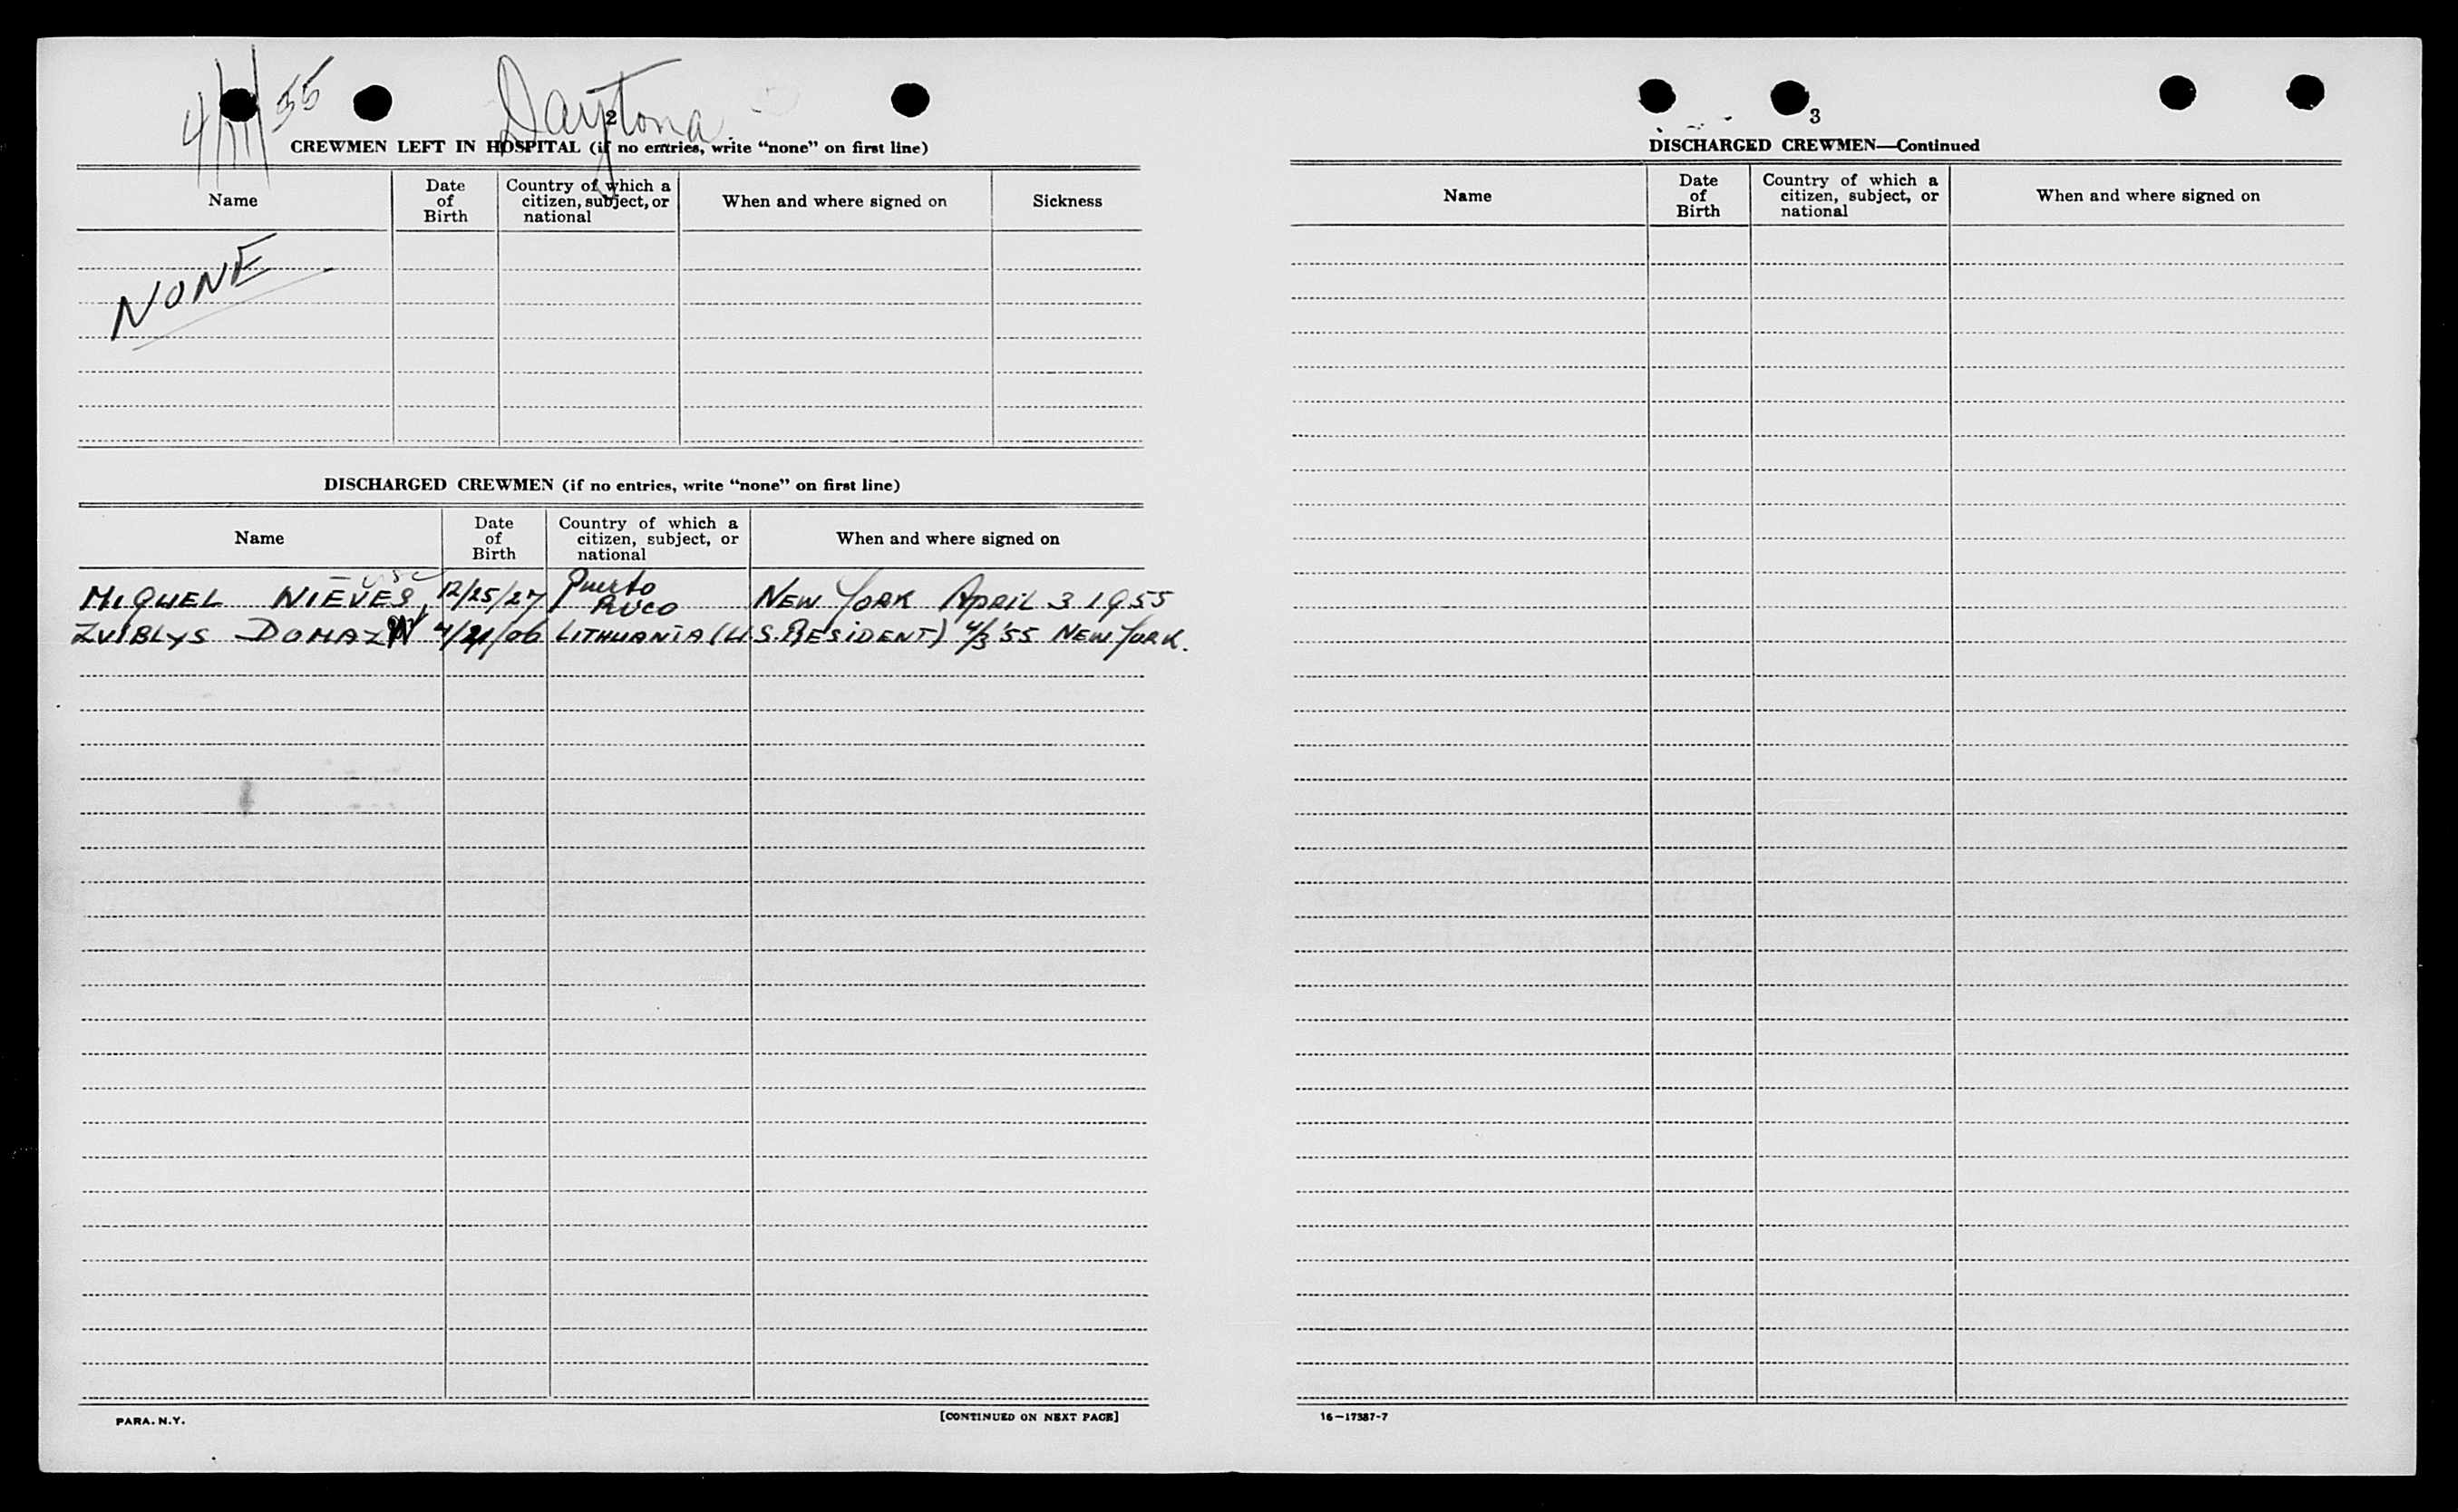 4/11/55
Daytona
2
CREWMEN LEFT IN HOSPITAL (if no entries, write “none” on first line)
Name
Date of Birth
Country of which a citizen, subject, or national
When and where signed on
Sickness
NONE
DISCHARGED CREWMEN (if no entries, write “none” on first line)
Name
Date of Birth
Country of which a citizen, subject, or national
When and where signed on
MIGUEL NIEVES, 12/25/27 Puerto Rico NEW YORK APRIL 3 1955
ZVIBLYS DOMAZ 4/21/06 LITHUANIA (U.S. RESIDENT) 4/3 '55 NEW YORK.
PARA. N.Y.
[CONTINUED ON NEXT PAGE]
3
DISCHARGED CREWMEN—Continued
Name
Date of Birth
Country of which a citizen, subject, or national
When and where signed on
16—17387-7